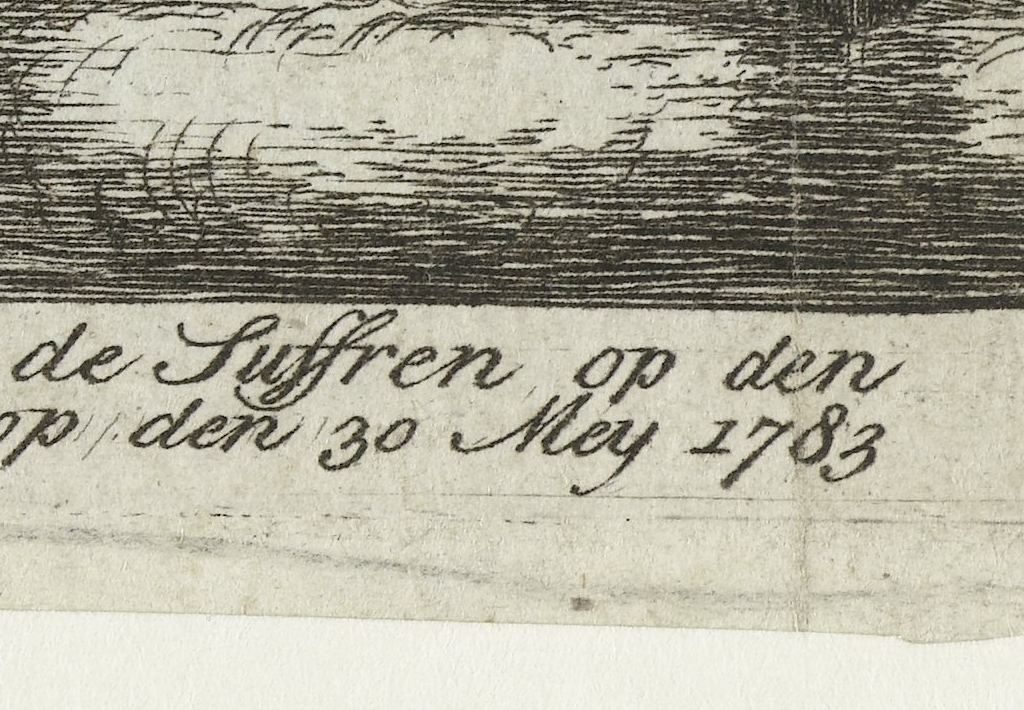 de Suffren op den
op den 30 Mey 1783